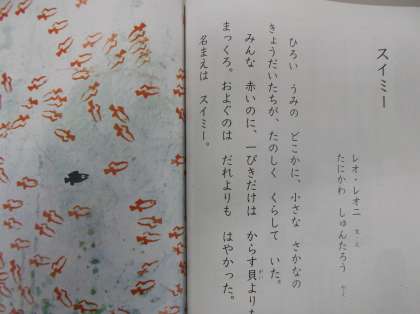 スイミー
レオ・レオニ 文・え
たにかわ しゅんたろう やく
ひろい うみの どこかに、小さな さかなの
きょうだいたちが、たのしく くらして いた。
みんな 赤いのに、一ぴきだけは からす貝よりも
まっくろ。およぐのは だれよりも はやかった。
名まえは スイミー。